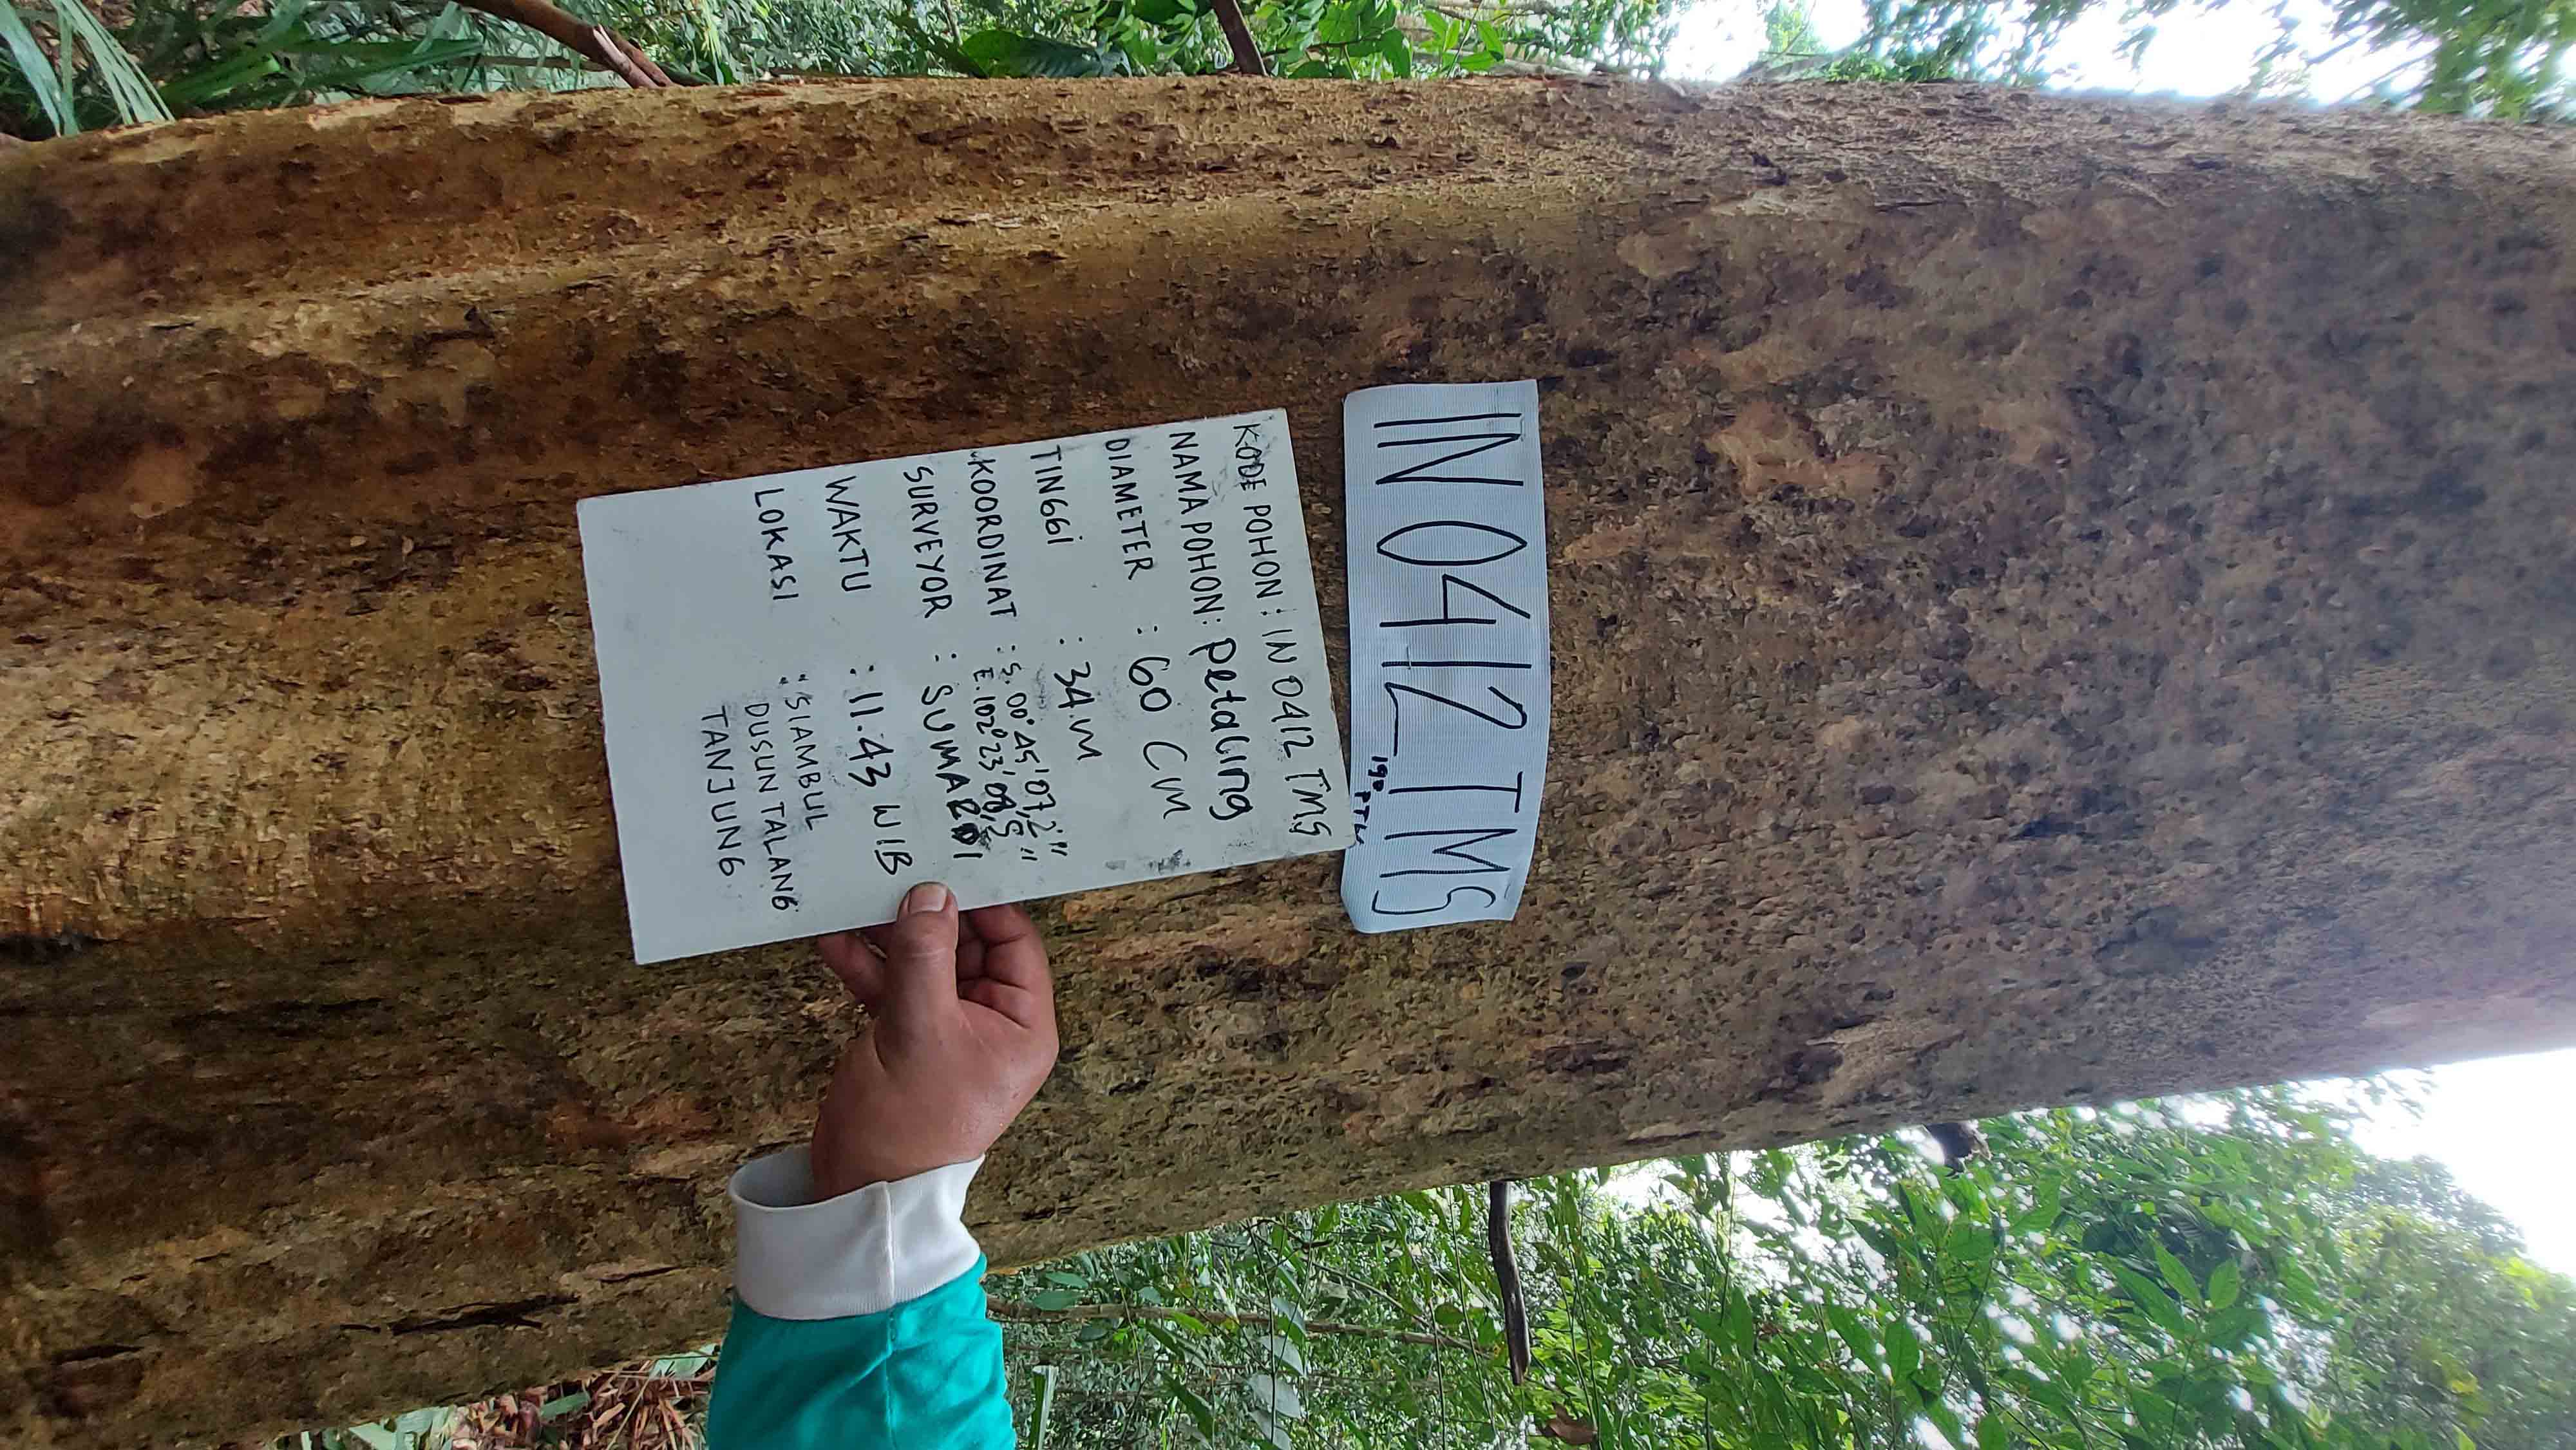 IN 0412 TMS
190
PTW
KODE POHON : IN 0412 TMS
NAMA POHON : Petaling
DIAMETER : 60 Cm
TINGGI : 34.m
KOORDINAT : S. 00° 45' 07,2"
E. 102° 23' 08,5"
SURVEYOR : SUMARDI
WAKTU : 11.43 WIB
LOKASI : SIAMBUL
DUSUN TALANG
TANJUNG